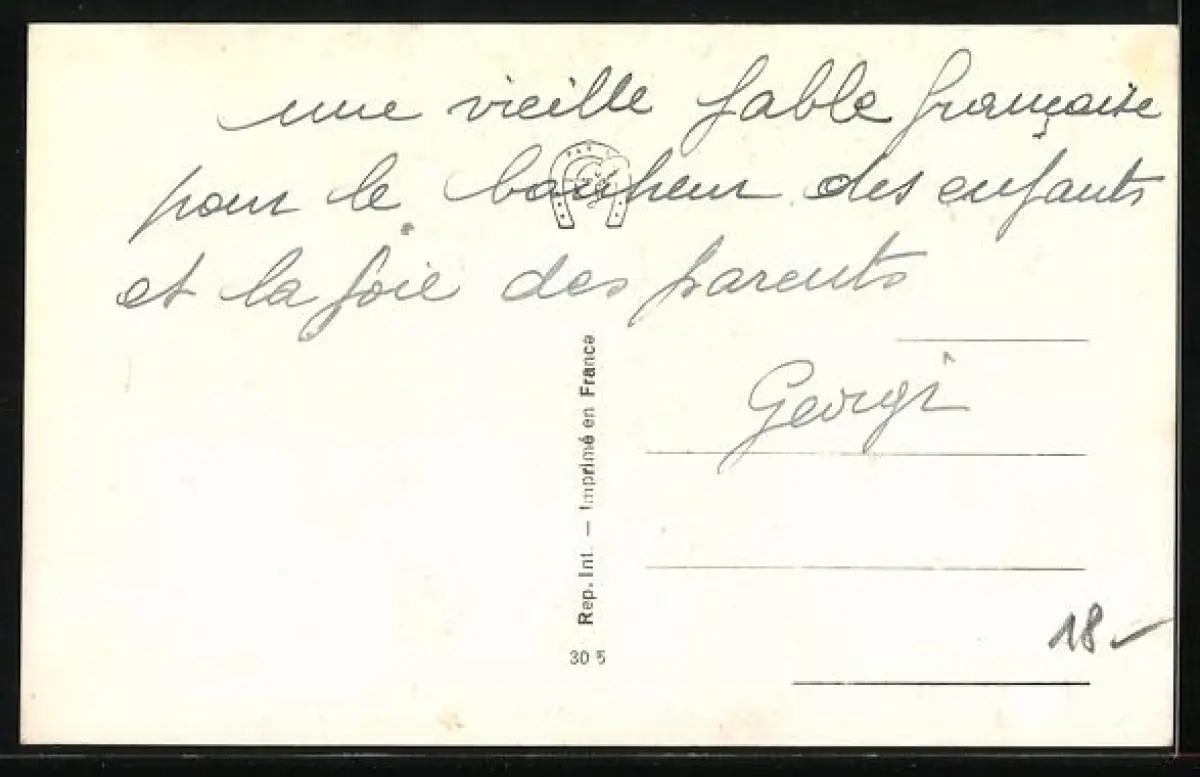 une vieille fable française
pour le bonheur des enfants
et la joie des parents
Georgi
Rep. Int. — Imprimé en France
30 5
18.-